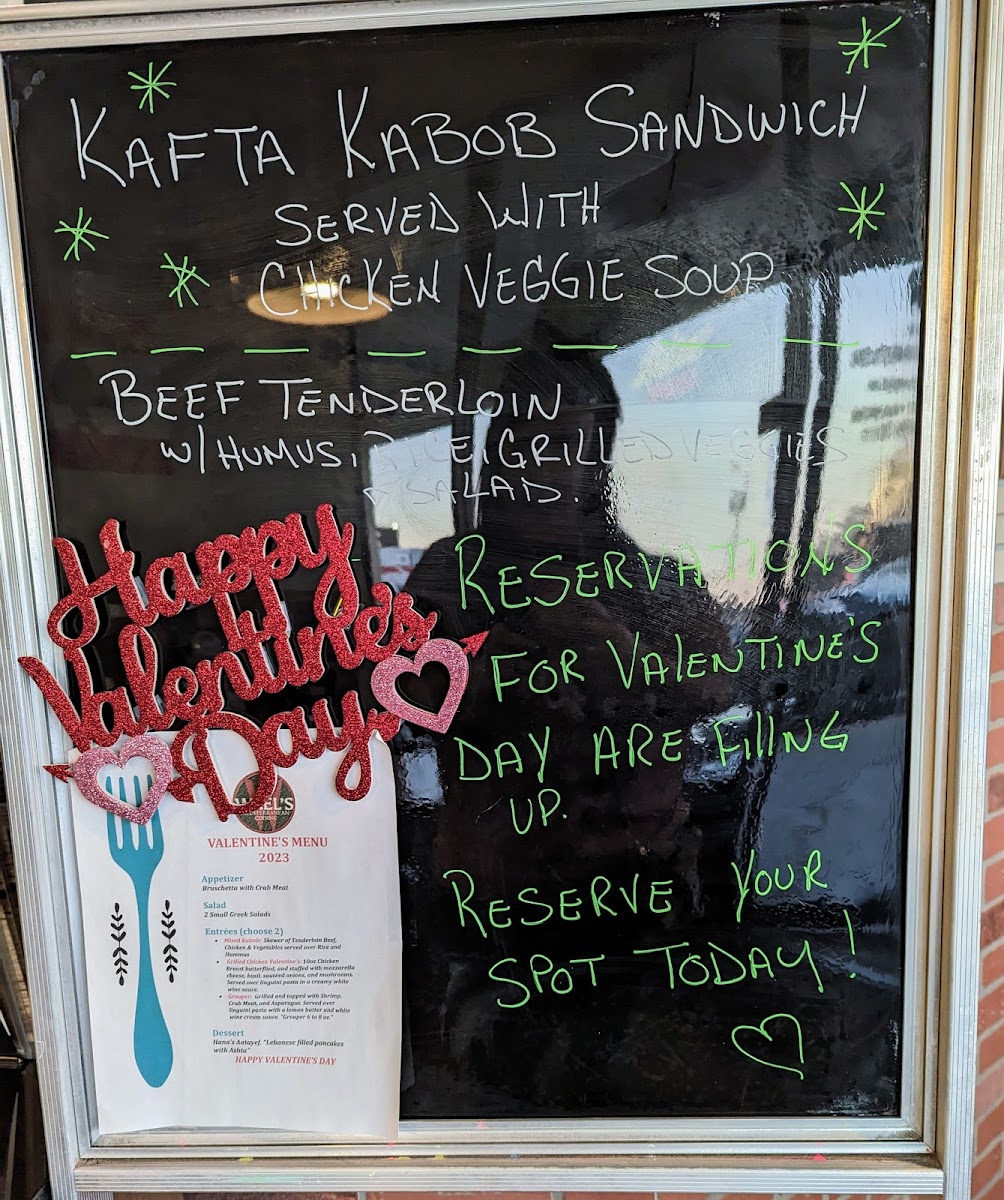 KAFTA KABOB SANDWICH
SERVED WITH
CHICKEN VEGGIE SOUP
BEEF TENDERLOIN
W/HUMUS, RICE, GRILLED VEGGIES
SALAD.
Happy
Valentine's
Day
RESERVATION'S
FOR VALENTINE'S
DAY ARE FIllING
UP.
RESERVE YOUR
SPOT TODAY!
VALENTINE'S MENU
2023
Appetizer
Bruschetta with Crab Meat
Salad
2 Small Greek Salads
Entrées (choose 2)
• Mixed Kabob: Skewer of Tenderloin Beef,
Chicken & Vegetables served over Rice and
Hummus
• Grilled Chicken Valentine's: 10oz Chicken
Breast butterflied, and stuffed with mozzarella
cheese, basil, sautéed onions, and mushrooms.
Served over linguini pasta in a creamy white
wine sauce.
• Grouper: Grilled and topped with Shrimp,
Crab Meat, and Asparagus. Served over
linguini pasta with a lemon butter and white
wine cream sauce. "Grouper 6 to 8 oz."
Dessert
Hana's Aatayef. "Lebanese filled pancakes
with Ashta"
HAPPY VALENTINE'S DAY